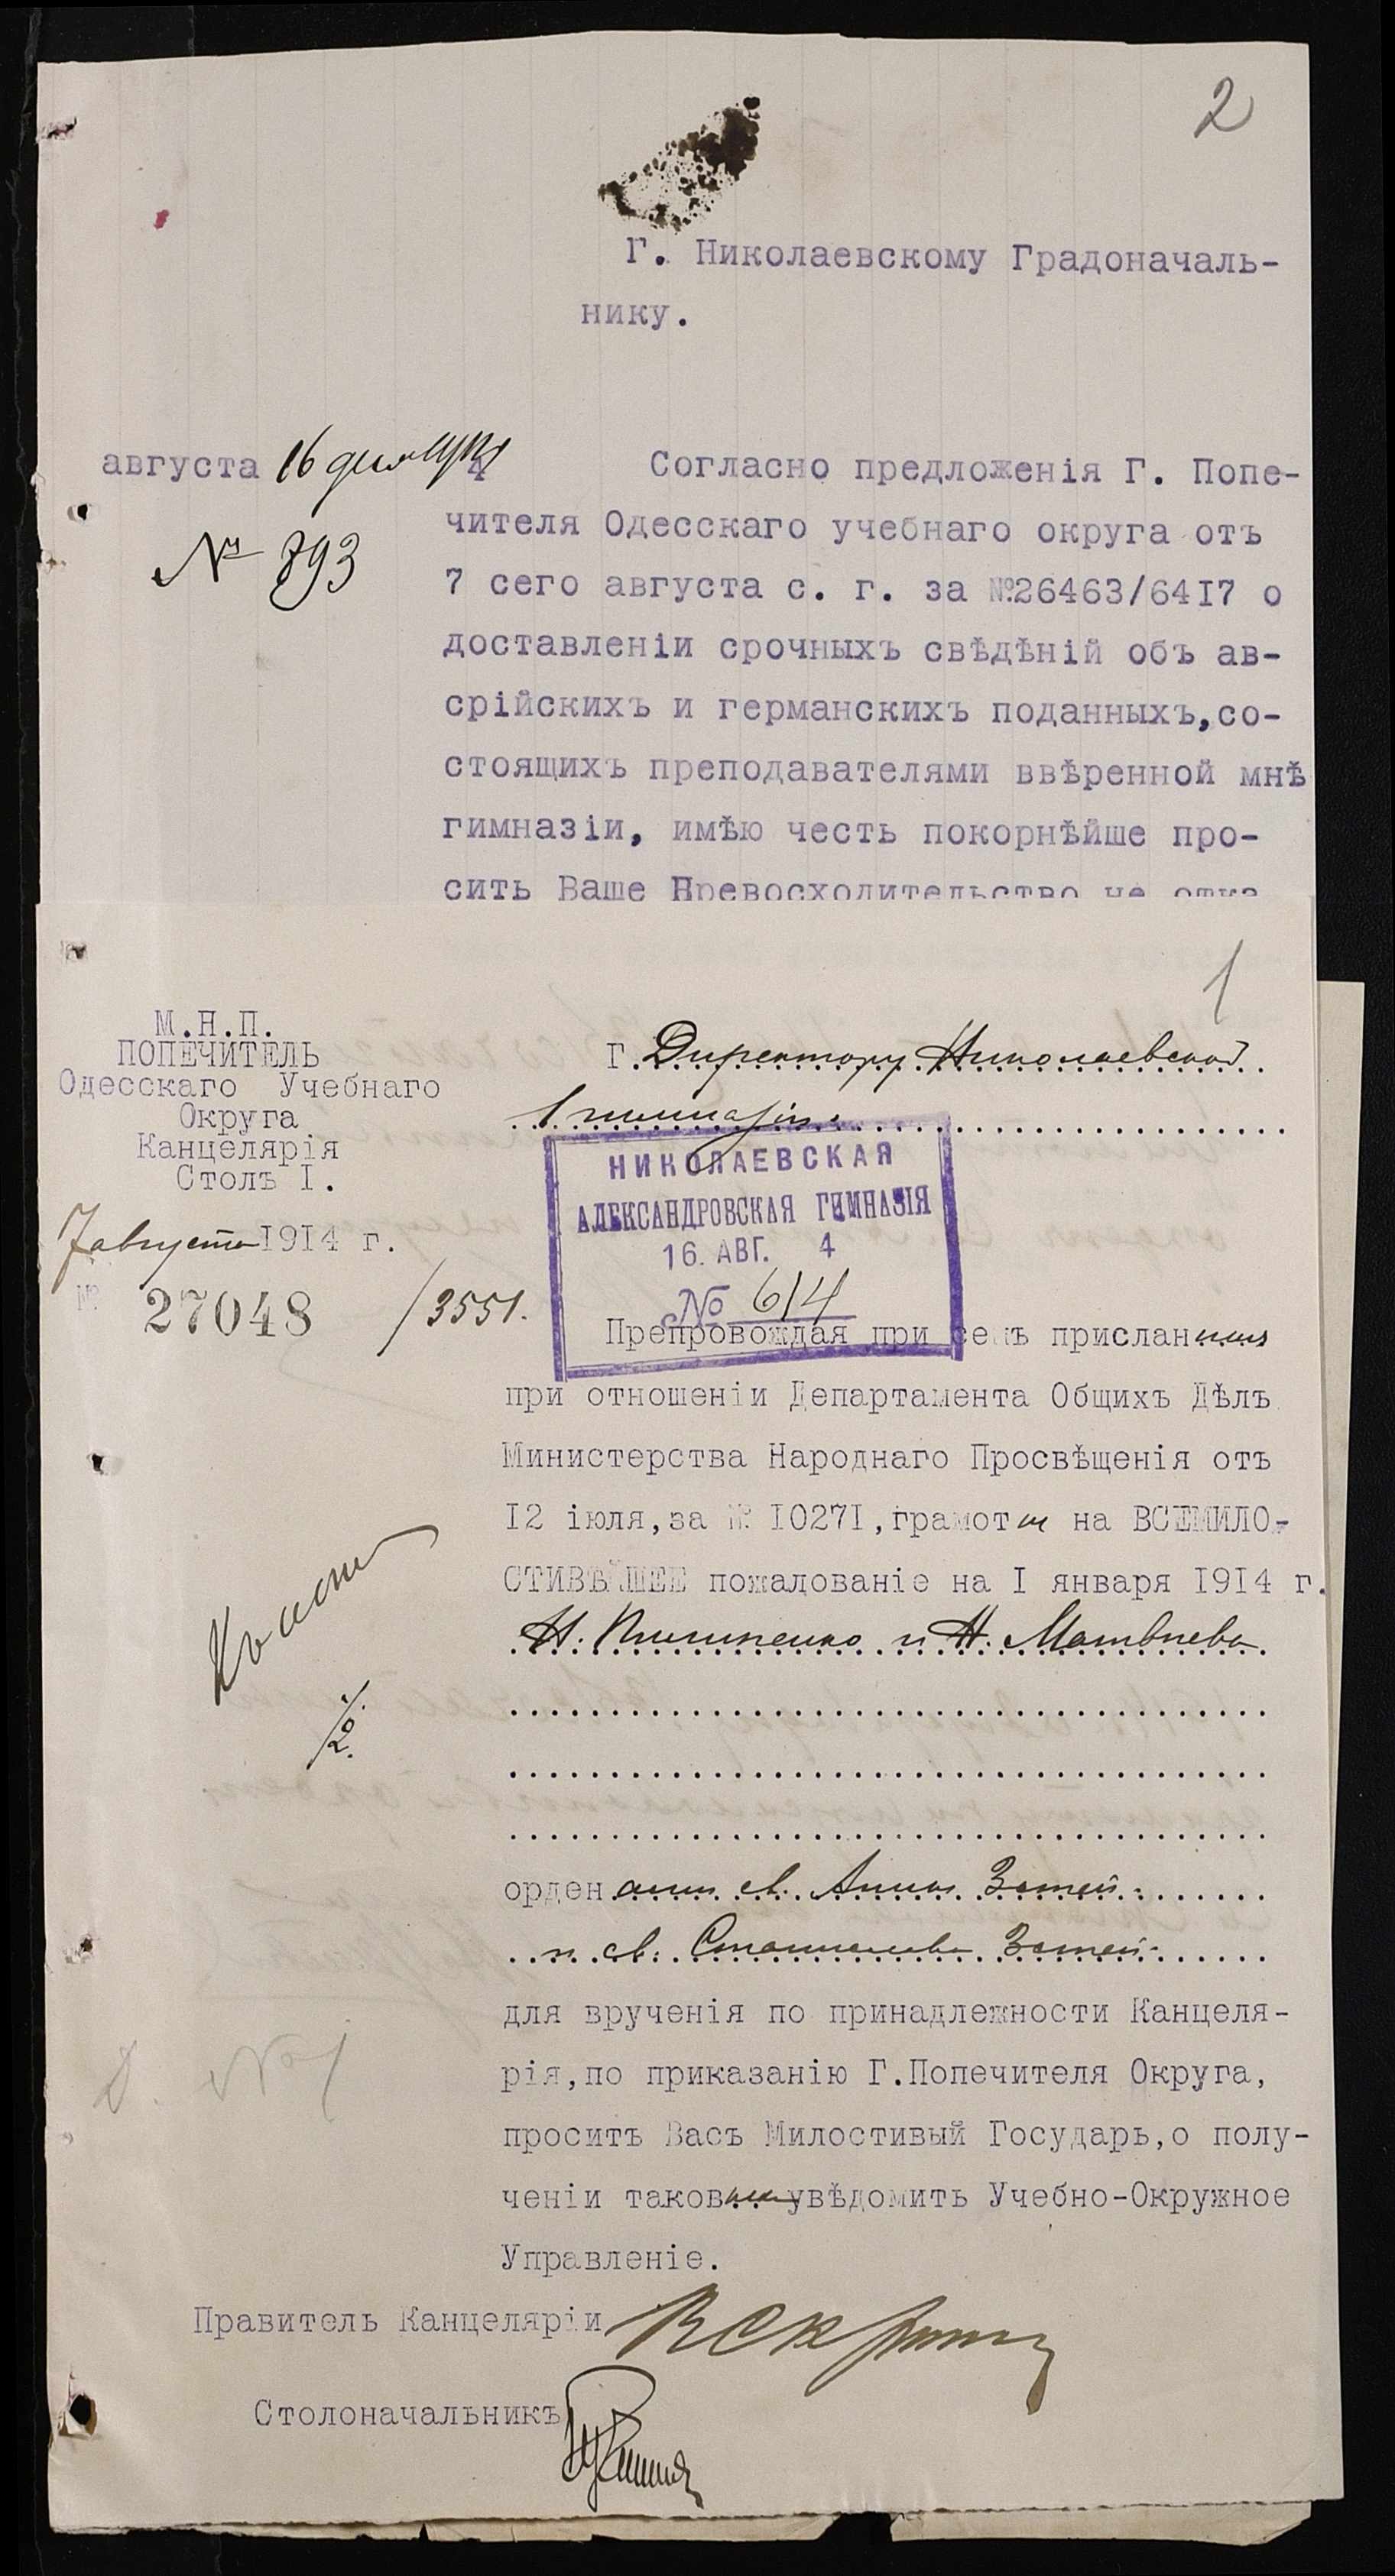 2
Г. Николаевскому Градоначаль-
нику.
августа 16 4
№ 893
Согласно предложенія Г. Попе-
чителя Одесскаго учебнаго округа отъ
7 сего августа с. г. за №26463/64I7 о
доставленіи срочныхъ свѣдѣній объ ав-
срійскихъ и германскихъ поданныхъ,со-
стоящихъ преподавателями ввѣренной мнѣ
гимназіи, имѣю честь покорнѣйше про-
сить Ваше Превосходительство не отка
1
М.Н.П.
ПОПЕЧИТЕЛЬ
Одесскаго Учебнаго
Округа
Канцелярія
Столъ I.
7 августа I9I4 г.
№ 27048 /3551.
Г. Директору Николаевской
1 гимназіи.
НИКОЛАЕВСКАЯ
АЛЕКСАНДРОВСКАЯ ГИМНАЗІЯ
16. АВГ. 4
№ 614
Препровождая при семъ присланныя
при отношеніи Департамента Общихъ Дѣлъ
Министерства Народнаго Просвѣщенія отъ
I2 іюля,за № I027I,грамоты на ВСЕМИЛО-
СТИВѢЙШЕЕ пожалованіе на I января I9I4 г.
Н. и Н. Матвѣева
орденами св. Анны 3 степ.
и св. Станислава 3 степ.
для врученія по принадлежности Канцеля-
рія,по приказанію Г.Попечителя Округа,
проситъ Васъ Милостивый Государь,о полу-
ченіи таковыхъ увѣдомить Учебно-Окружное
Управленіе.
№ 1
Правитель Канцеляріи
Столоначальникъ